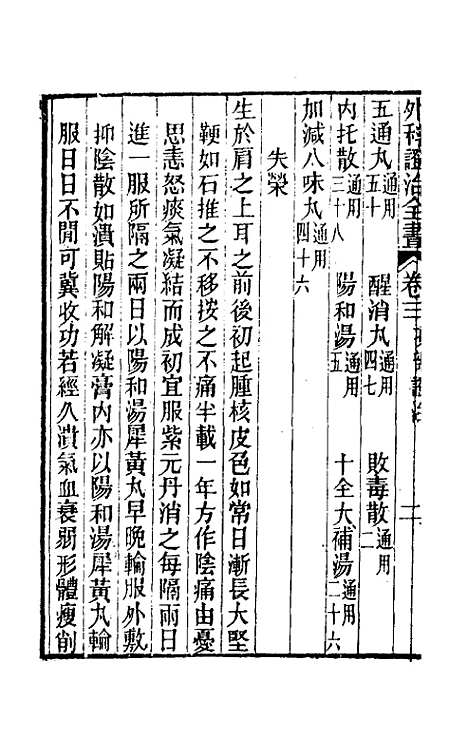 外科證治全書 卷三 二
五通丸通用五十 醒消丸通用四七 敗毒散通用二
內托散通用三十八 陽和湯通用五 十全大補湯通用二十六
加減八味丸通用四十六
失榮
生於肩之上耳之前後初起腫核皮色如常日漸長大堅
鞕如石推之不移按之不痛半載一年方作陰痛由憂
思恚怒痰氣凝結而成初宜服紫元丹消之每隔兩日
進一服所隔之兩日以陽和湯犀黃丸早晚輪服外敷
抑陰散如潰貼陽和解凝膏內亦以陽和湯犀黃丸輪
服日日不閒可冀收功若經久潰氣血衰弱形體瘦削